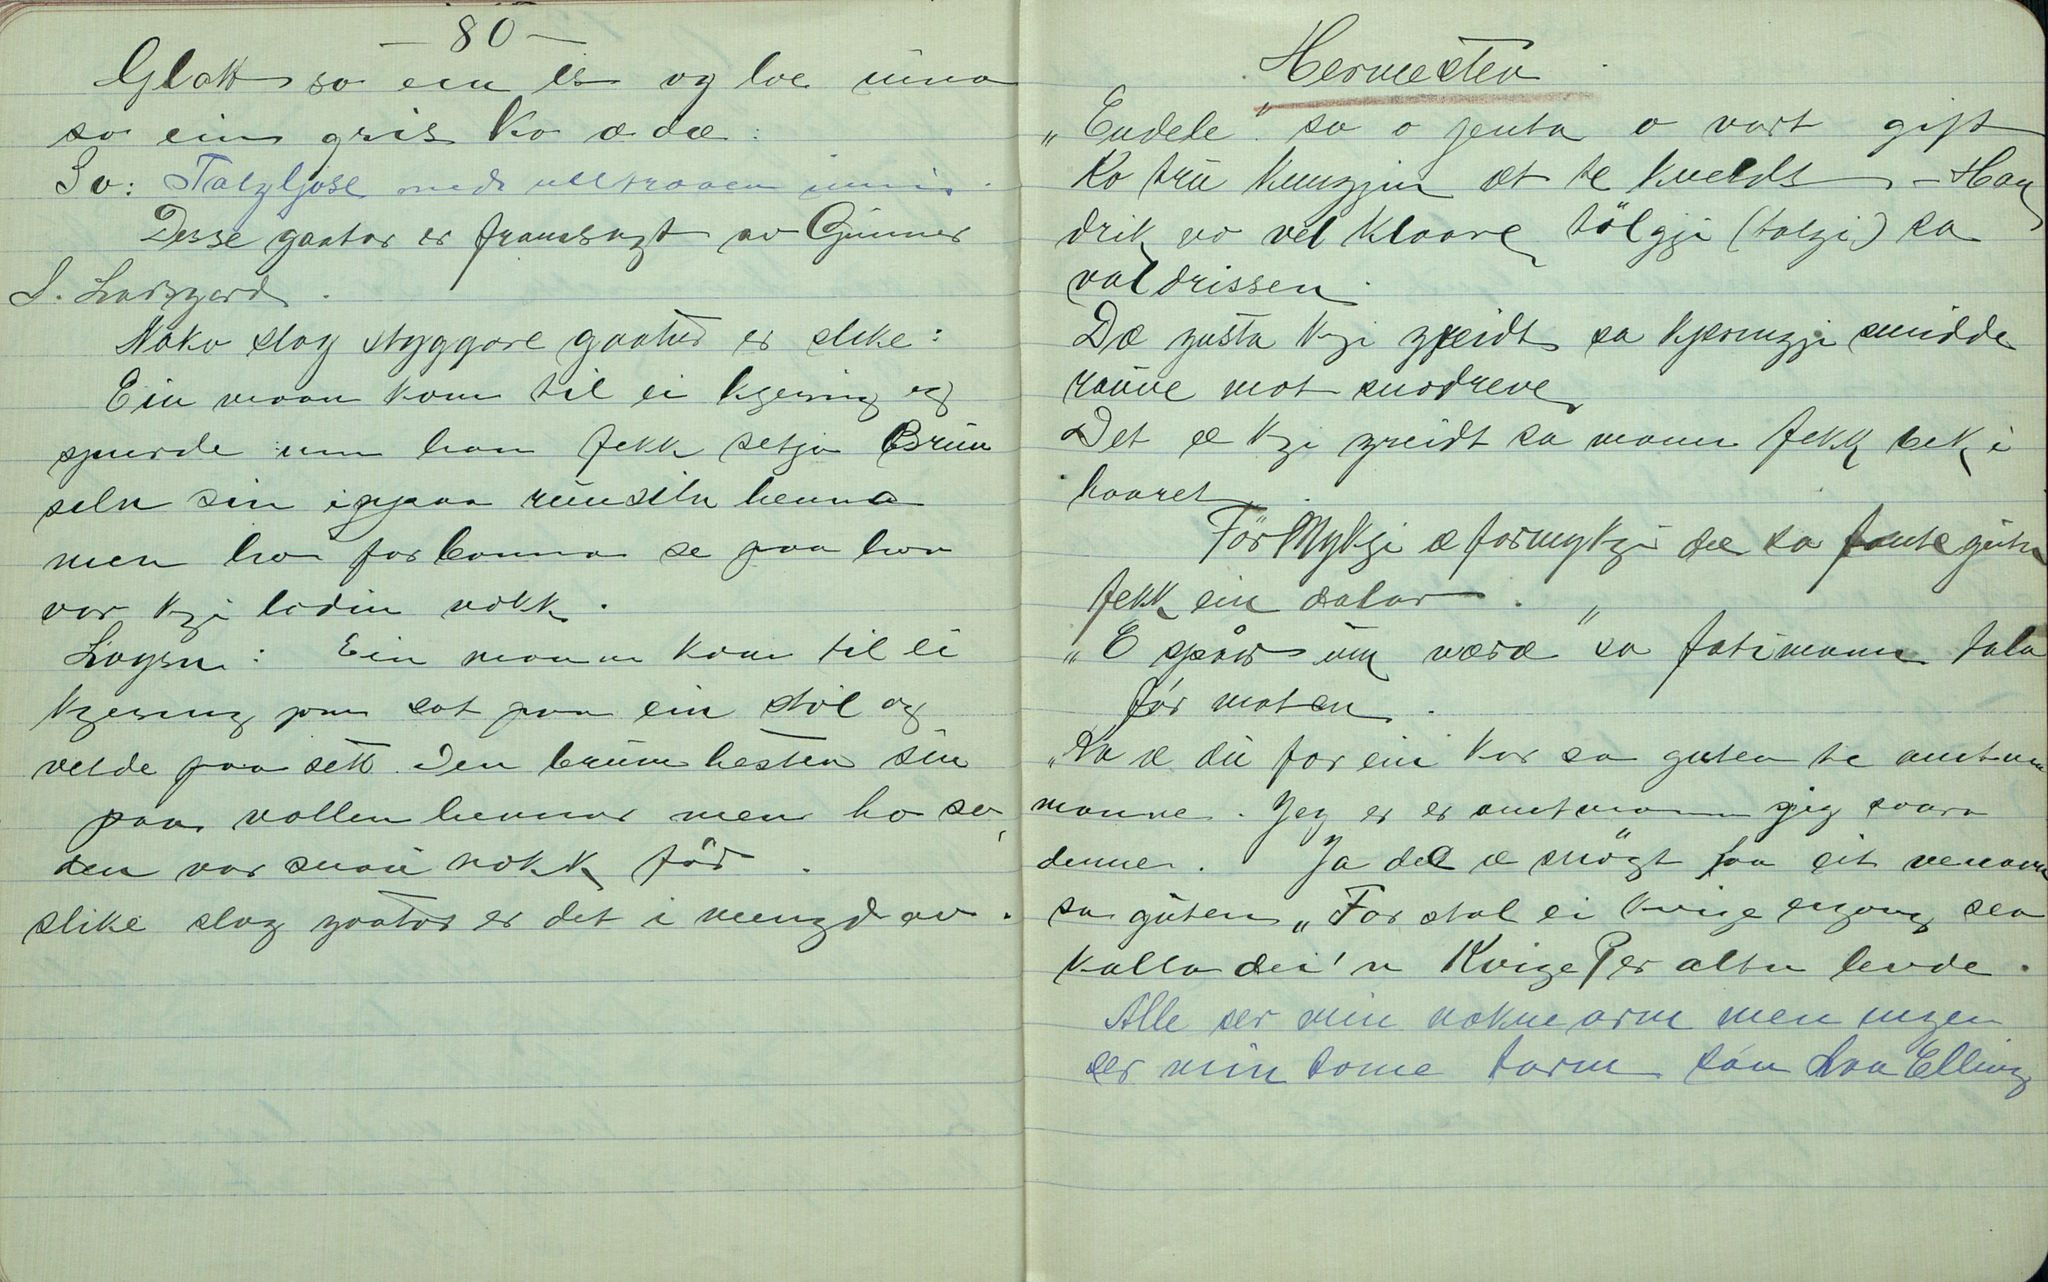 — 80 —
Glatt so ein is og loe inna
so ein gris Ko æ dæ:
Sv: Talgljose med ulltraaen inni.
Desse gaator er framsagt av Gunner
S. Larsgard.
Noko slag styggare gaator er slike:
Ein maan kom til ei kjering og
spurde um han fekk setja Brun
seln sin ippaa runseln henna
men ho forbanna se paa ho
var kji lodin nokk.
Løysn: Ein mann kom til ei
kjering som sat paa ein stol og
vilde faa sett den brune hesten sin
paa vollen hennar men ho sa
den var snau nokk før.
slike slag gaator er det i mengd av.
Hermester
„Endele" sa o jenta o vart gift
Ko tru kungjin æt te kvelds – Han
drik vo vel klaare tölgji (talgi) sa
valdrissen.
Dæ gasta kji greidt sa kjeringji snudde
rauve mot snodreve
Det æ kji greidt sa mann fekk bek i
haaret.
Før Mykji æ formykji dæ sa fanteguten
fekk ein dalar.
„E spør um være" sa fatimann tala
før maten.
„Ka æ du for ein kar sa guten te amtmann
manne. Jeg er er amtmann jeg svara
denne. Ja det æ snøgt faa eit venavn
sa guten „Far stal ei kvige eigong sea
kalla dei'n Kvige Per alltu levde.
Alle ser min nakne arm men ingen
ser min tome tarm sa'n Laa Elling